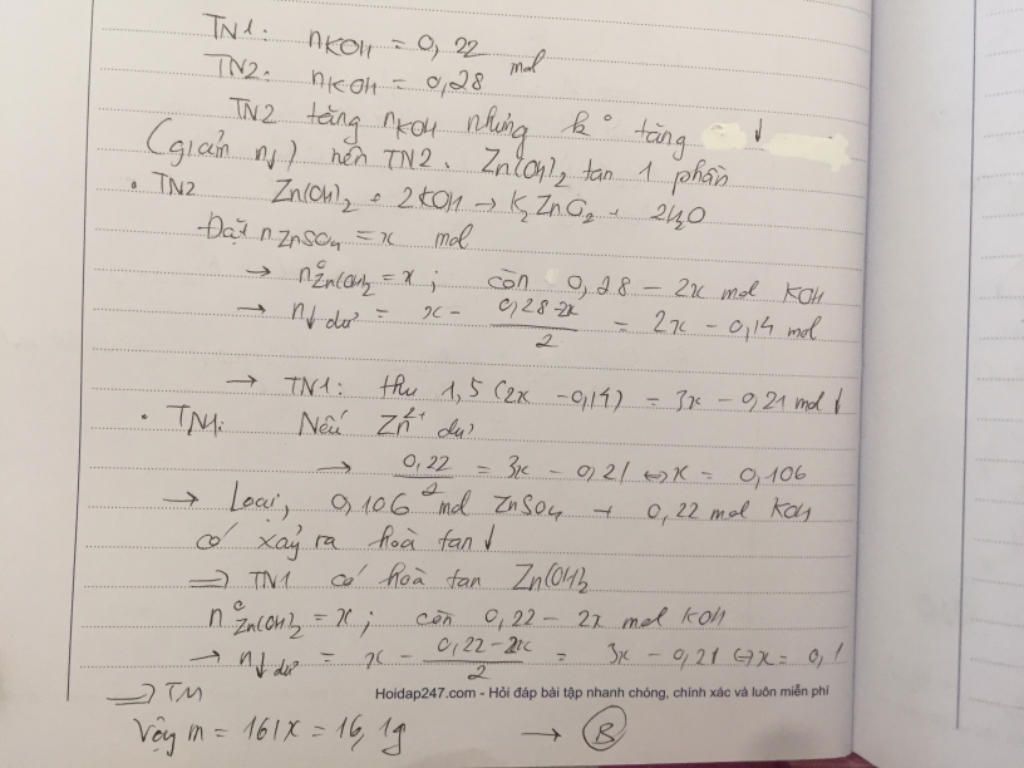 TN1: nKOH = 0,22 mol
TN2: nKOH = 0,28
TN2 tăng nKOH nhưng k° tăng ↓
(giảm n↓) nên TN2. Zn(OH)2 tan 1 phần
• TN2 Zn(OH)2 + 2KOH → K2ZnO2 + 2H2O
Đặt nZnSO4 = x mol
→ n°Zn(OH)2 = x; còn 0,28 - 2x mol KOH
→ n↓ dư = x - (0,28-2x)/2 = 2x - 0,14 mol
→ TN1: thu 1,5(2x - 0,14) = 3x - 0,21 mol ↓
• TN1: Nếu Zn2+ dư
→ 0,22/2 = 3x - 0,21 ⇔ x = 0,106
→ Loại, 0,106 mol ZnSO4 + 0,22 mol KOH
có xảy ra hoà tan ↓
⇒ TN1 có hoà tan Zn(OH)2
n°Zn(OH)2 = x; còn 0,22 - 2x mol KOH
→ n↓ dư = x - (0,22-2x)/2 = 3x - 0,21 ⇔ x = 0,1
⇒ TM
Hoidap247.com - Hỏi đáp bài tập nhanh chóng, chính xác và luôn miễn phí
Vậy m = 161x = 16,1g → B